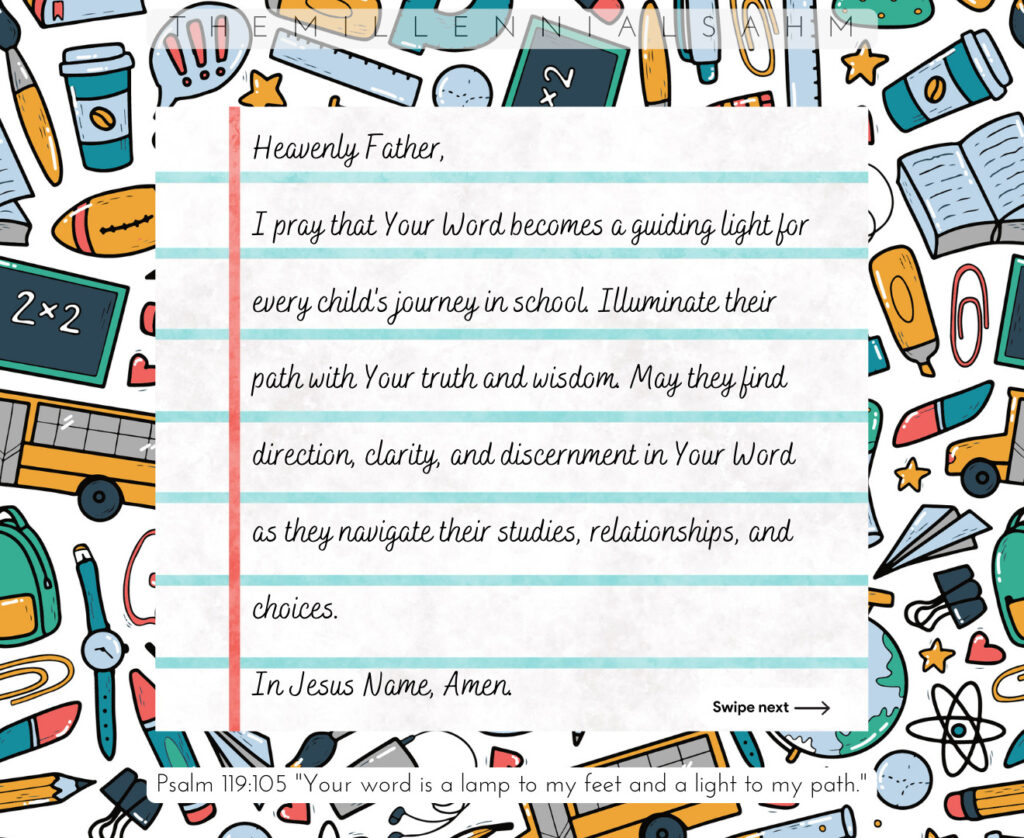 THEMILLENNIALSAHM
2×2
×2
Heavenly Father,
I pray that Your Word becomes a guiding light for
every child's journey in school. Illuminate their
2×2
path with Your truth and wisdom. May they find
direction, clarity, and discernment in Your Word
as they navigate their studies, relationships, and
choices.
In Jesus Name, Amen.
Swipe next
Psalm 119:105 "Your word is a lamp to my feet and a light to my path."